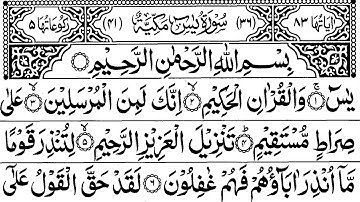 اٰیاتها ٨٣ (٣٦) سُوْرَةُ يٰسٓ مَكِّيَّةٌ (٤١) رکوعاتها ٥
بِسْمِ اللّٰهِ الرَّحْمٰنِ الرَّحِيْمِ
يٰسٓ ١ وَالْقُرْاٰنِ الْحَكِيْمِ ٢ اِنَّكَ لَمِنَ الْمُرْسَلِيْنَ ٣ عَلٰى
صِرَاطٍ مُّسْتَقِيْمٍ ٤ تَنْزِيْلَ الْعَزِيْزِ الرَّحِيْمِ ٥ لِتُنْذِرَ قَوْمًا
مَّاۤ اُنْذِرَ اٰبَآؤُهُمْ فَهُمْ غٰفِلُوْنَ ٦ لَقَدْ حَقَّ الْقَوْلُ عَلٰۤى